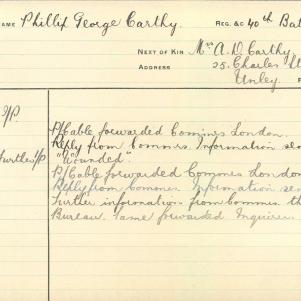 NAME Phillip George Carthy. REG. &C 40th Bat
NEXT OF KIN Mrs A. D. Carthy
ADDRESS 25, Charles
Unley.
P/Cable forwarded Commrs London.
Reply from Commrs. Information
"Wounded".
P/Cable forwarded Commrs London
Reply from Commrs Information
Further information from Commrs
Bureau. Same forwarded Enquirer